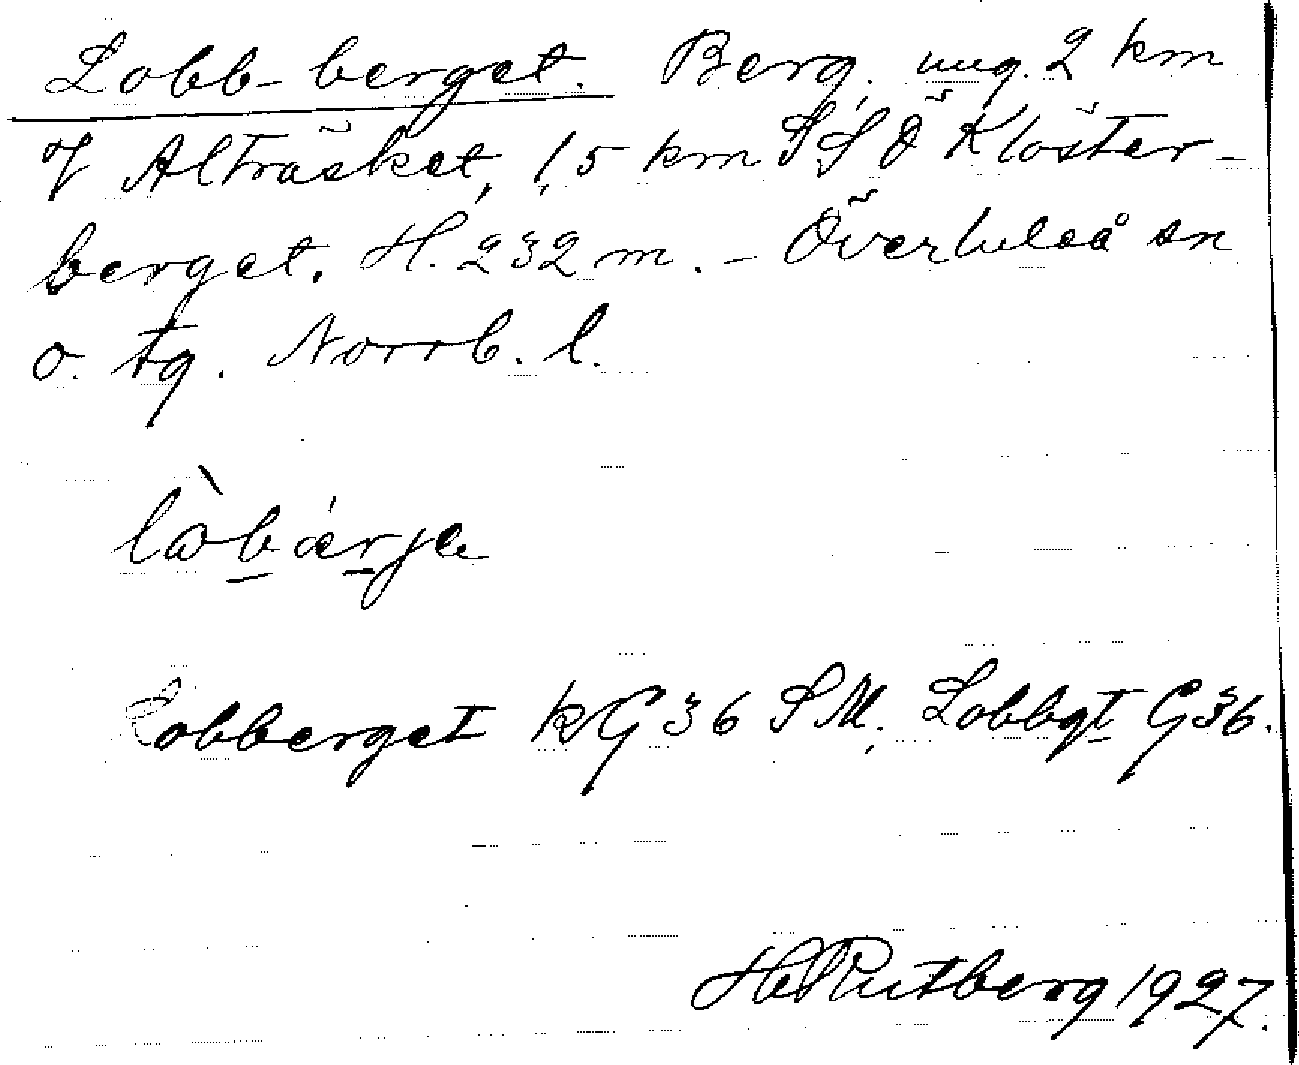 Lobb-berget. Berg, ung. 2 km
of Alträsket, 1,5 km SSÖ Klöster-
berget. H. 232 m. - Överluleå sn
o. tg. Norrb. l.
Lobberget kG 36 SM, Lobbgt G 36.
H Rutberg 1927.